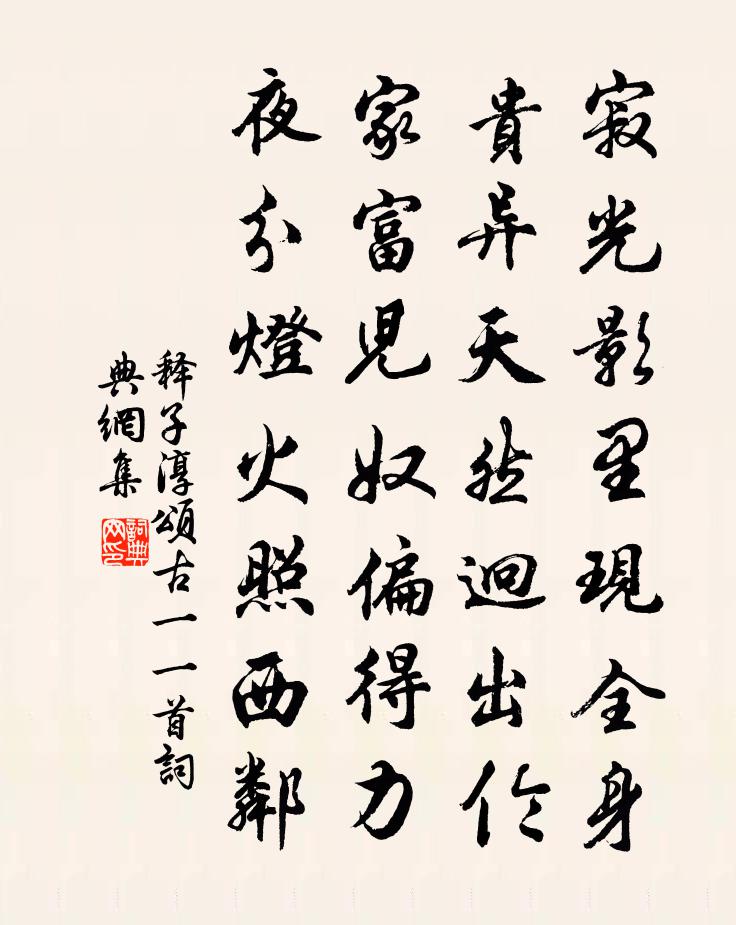 寂光影里現全身
貴异天然迥出伦
家富児奴偏得力
夜分燈火照西鄰
释子淳頌古一一首詞
典網集
詞典网印